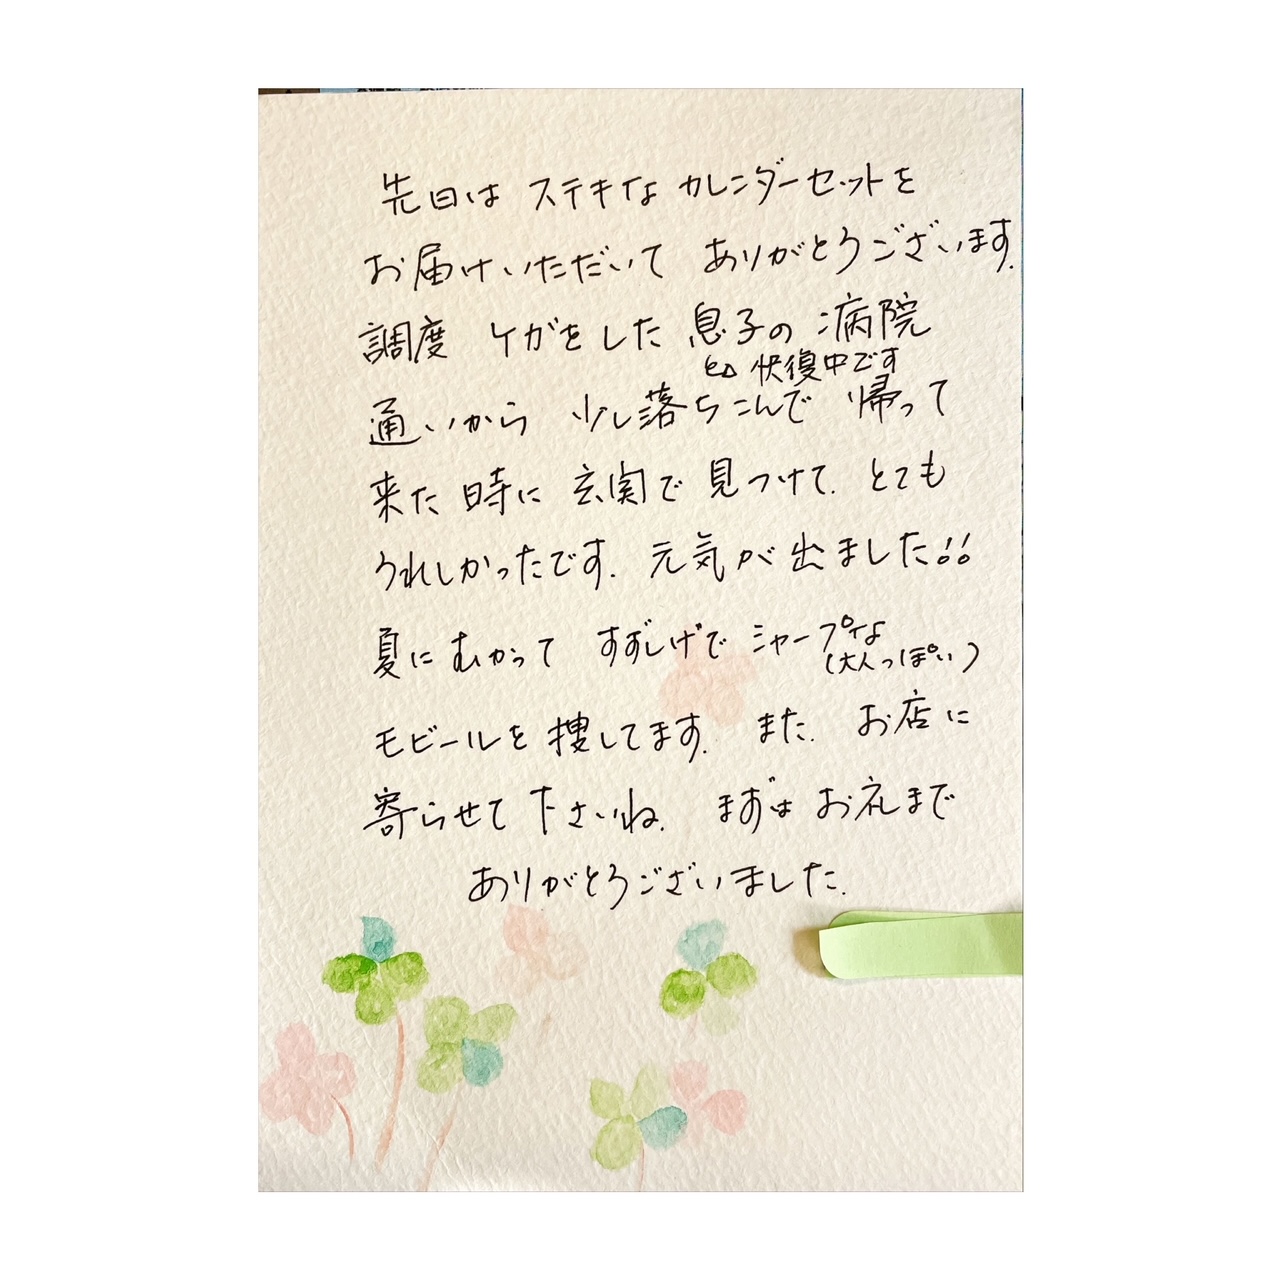 先日は ステキな カレンダーセットを
お届けいただいて ありがとうございます.
調度 ケガをした 息子の 病院
快復中です
通いから 少し落ちこんで 帰って
来た 時に 玄関で 見つけて. とても
うれしかったです. 元気が 出ました!!
夏に むかって すずしげで シャープな
(大人っぽい)
モビールを 捜してます. また. お店に
寄らせて 下さいね. まずは お礼まで
ありがとうございました.